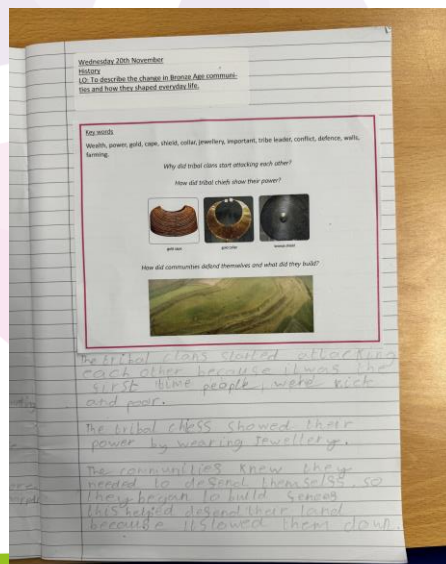 Wednesday 20th November
History
LO: To describe the change in Bronze Age communi-
ties and how they shaped everyday life.
Key words
Wealth, power, gold, cape, shield, collar, jewellery, important, tribe leader, conflict, defence, walls,
farming.
Why did tribal clans start attacking each other?
How did tribal chiefs show their power?
gold cape
gold collar
bronze shield
How did communities defend themselves and what did they build?
The tribal clans started attacking
each other because it was the
first time people were rick
and poor.
The tribal chiefs showed their
power by wearing jewellery.
The communities knew they
needed to defend themselfs so
they began to build fences
this helped defend their land
because it slowed them down.